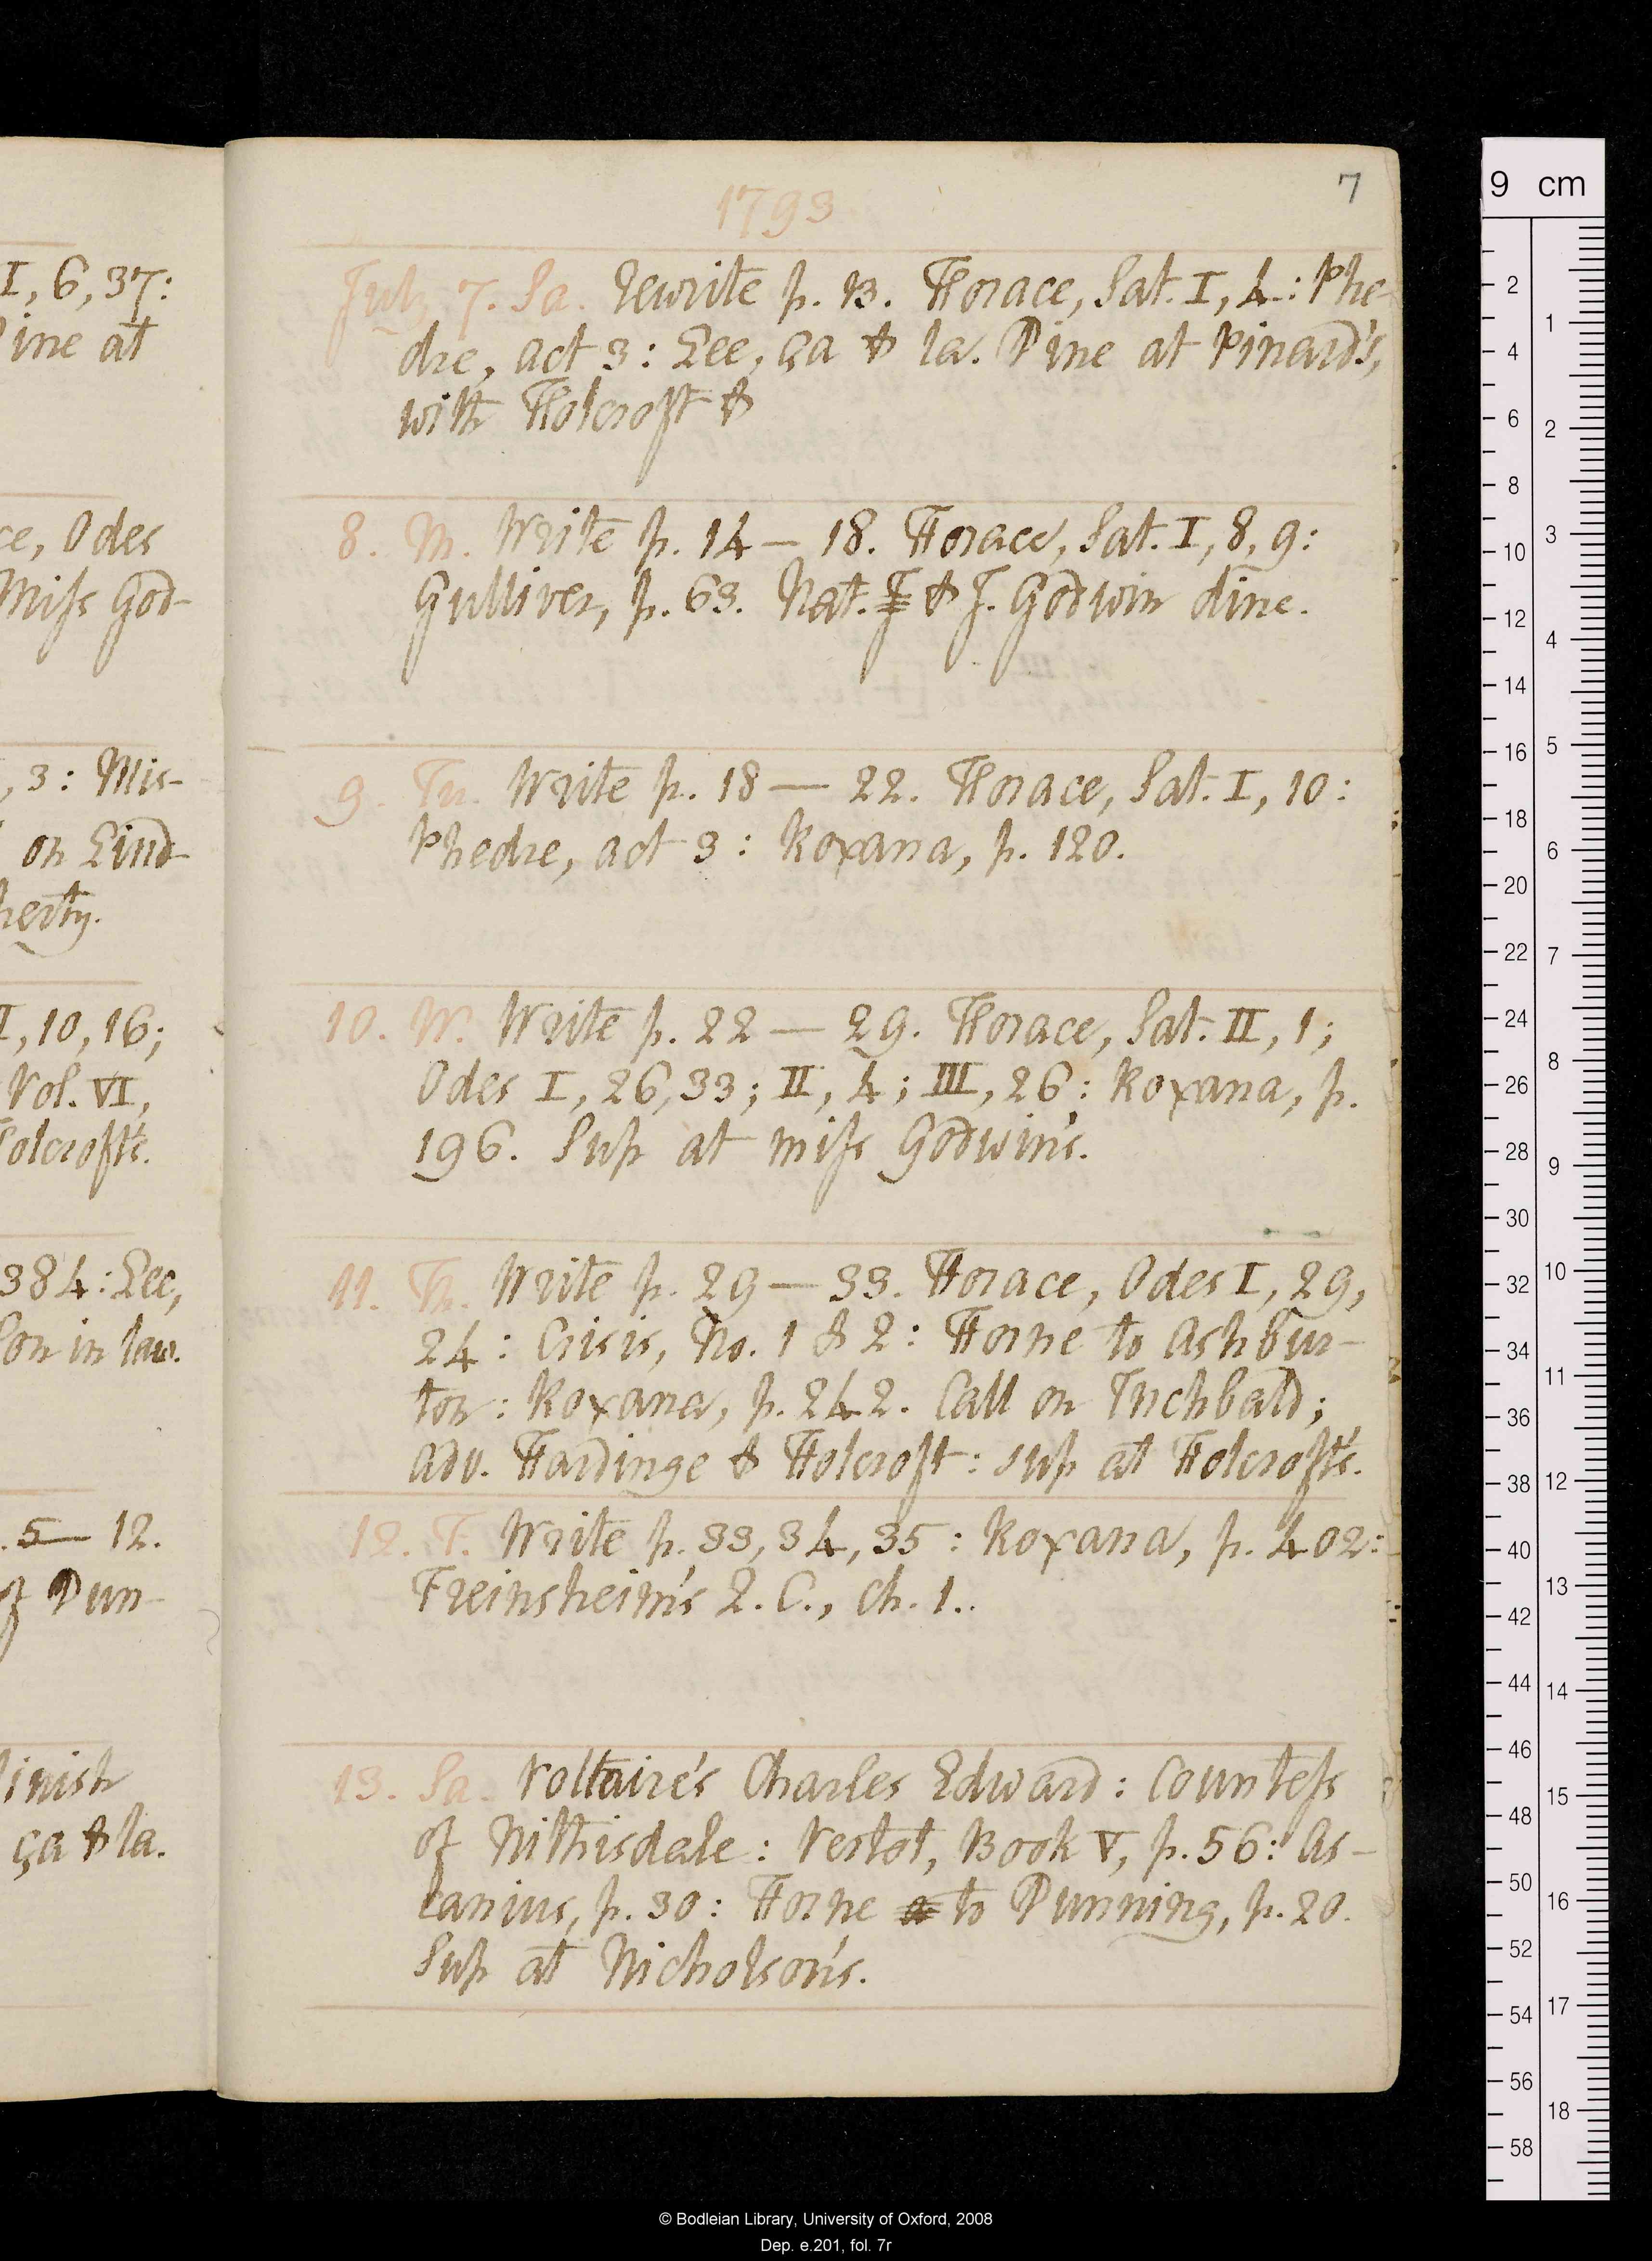 I, 6, 37:
ine at
ce, Odes
Miſs God-
, 3: Mis-
on Lind-
herty.
I, 10, 16;
Vol. VI,
Holcroft's.
384: Lee,
Son in law.
. 5— 12.
of Dun-
finish
ça & la.
7
1793
July 7. Su. Rewrite p. 13. Horace, Sat. I, 4: Phe-
dre, act 3: Lee, ça & la. Dine at Pinard's,
with Holcroft &
8. M. Write p. 14 — 18. Horace, Sat. I, 8, 9:
Gulliver, p. 63. Nat. & J. Godwin dine.
9. Tu. Write p. 18 — 22. Horace, Sat. I, 10:
Phedre, act 3: Roxana, p. 120.
10. W. Write p. 22 — 29. Horace, Sat. II, 1;
Odes I, 26, 33; II, 4; III, 26: Roxana, p.
196. Sup at miſs Godwin's.
11. Th. Write p. 29 — 33. Horace, Odes I, 29,
24: Crisis, No. 1 & 2: Horne to Ashbur-
ton: Roxana, p. 242. Call on Inchbald;
adv. Hardinge & Holcroft: sup at Holcroft's.
12. F. Write p. 33, 34, 35: Roxana, p. 402:
Freinsheim's Q. C., ch. 1..
13. Sa. Voltaire's Charles Edward: Counteſs
of Nithisdale: Vertot, Book V, p. 56: As-
canius, p. 30: Horne to Dunning, p. 20.
Sup at Nicholson's.
9 cm
2
4
6
8
10
12
14
16
18
20
22
24
26
28
30
32
34
36
38
40
42
44
46
48
50
52
54
56
58
1
2
3
4
5
6
7
8
9
10
11
12
13
14
15
16
17
18
© Bodleian Library, University of Oxford, 2008
Dep. e.201, fol. 7r